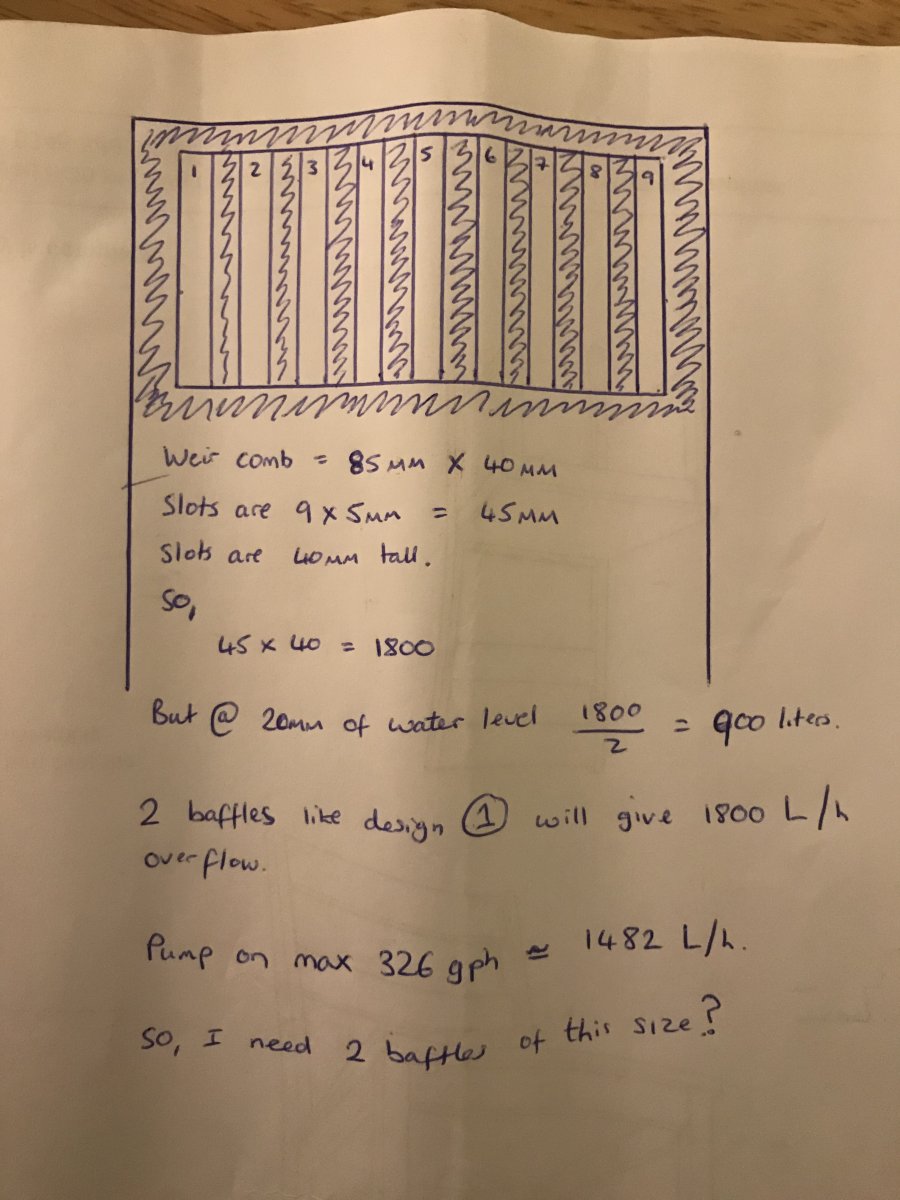 1 2 3 4 5 6 7 8 9
Weir comb = 85mm x 40mm
Slots are 9 x 5mm = 45mm
Slots are 40mm tall.
So,
45 x 40 = 1800
But @ 20mm of water level 1800/2 = 900 liters.
2 baffles like design ① will give 1800 L/h
overflow.
Pump on max 326 gph ≈ 1482 L/h.
So, I need 2 baffles of this size?